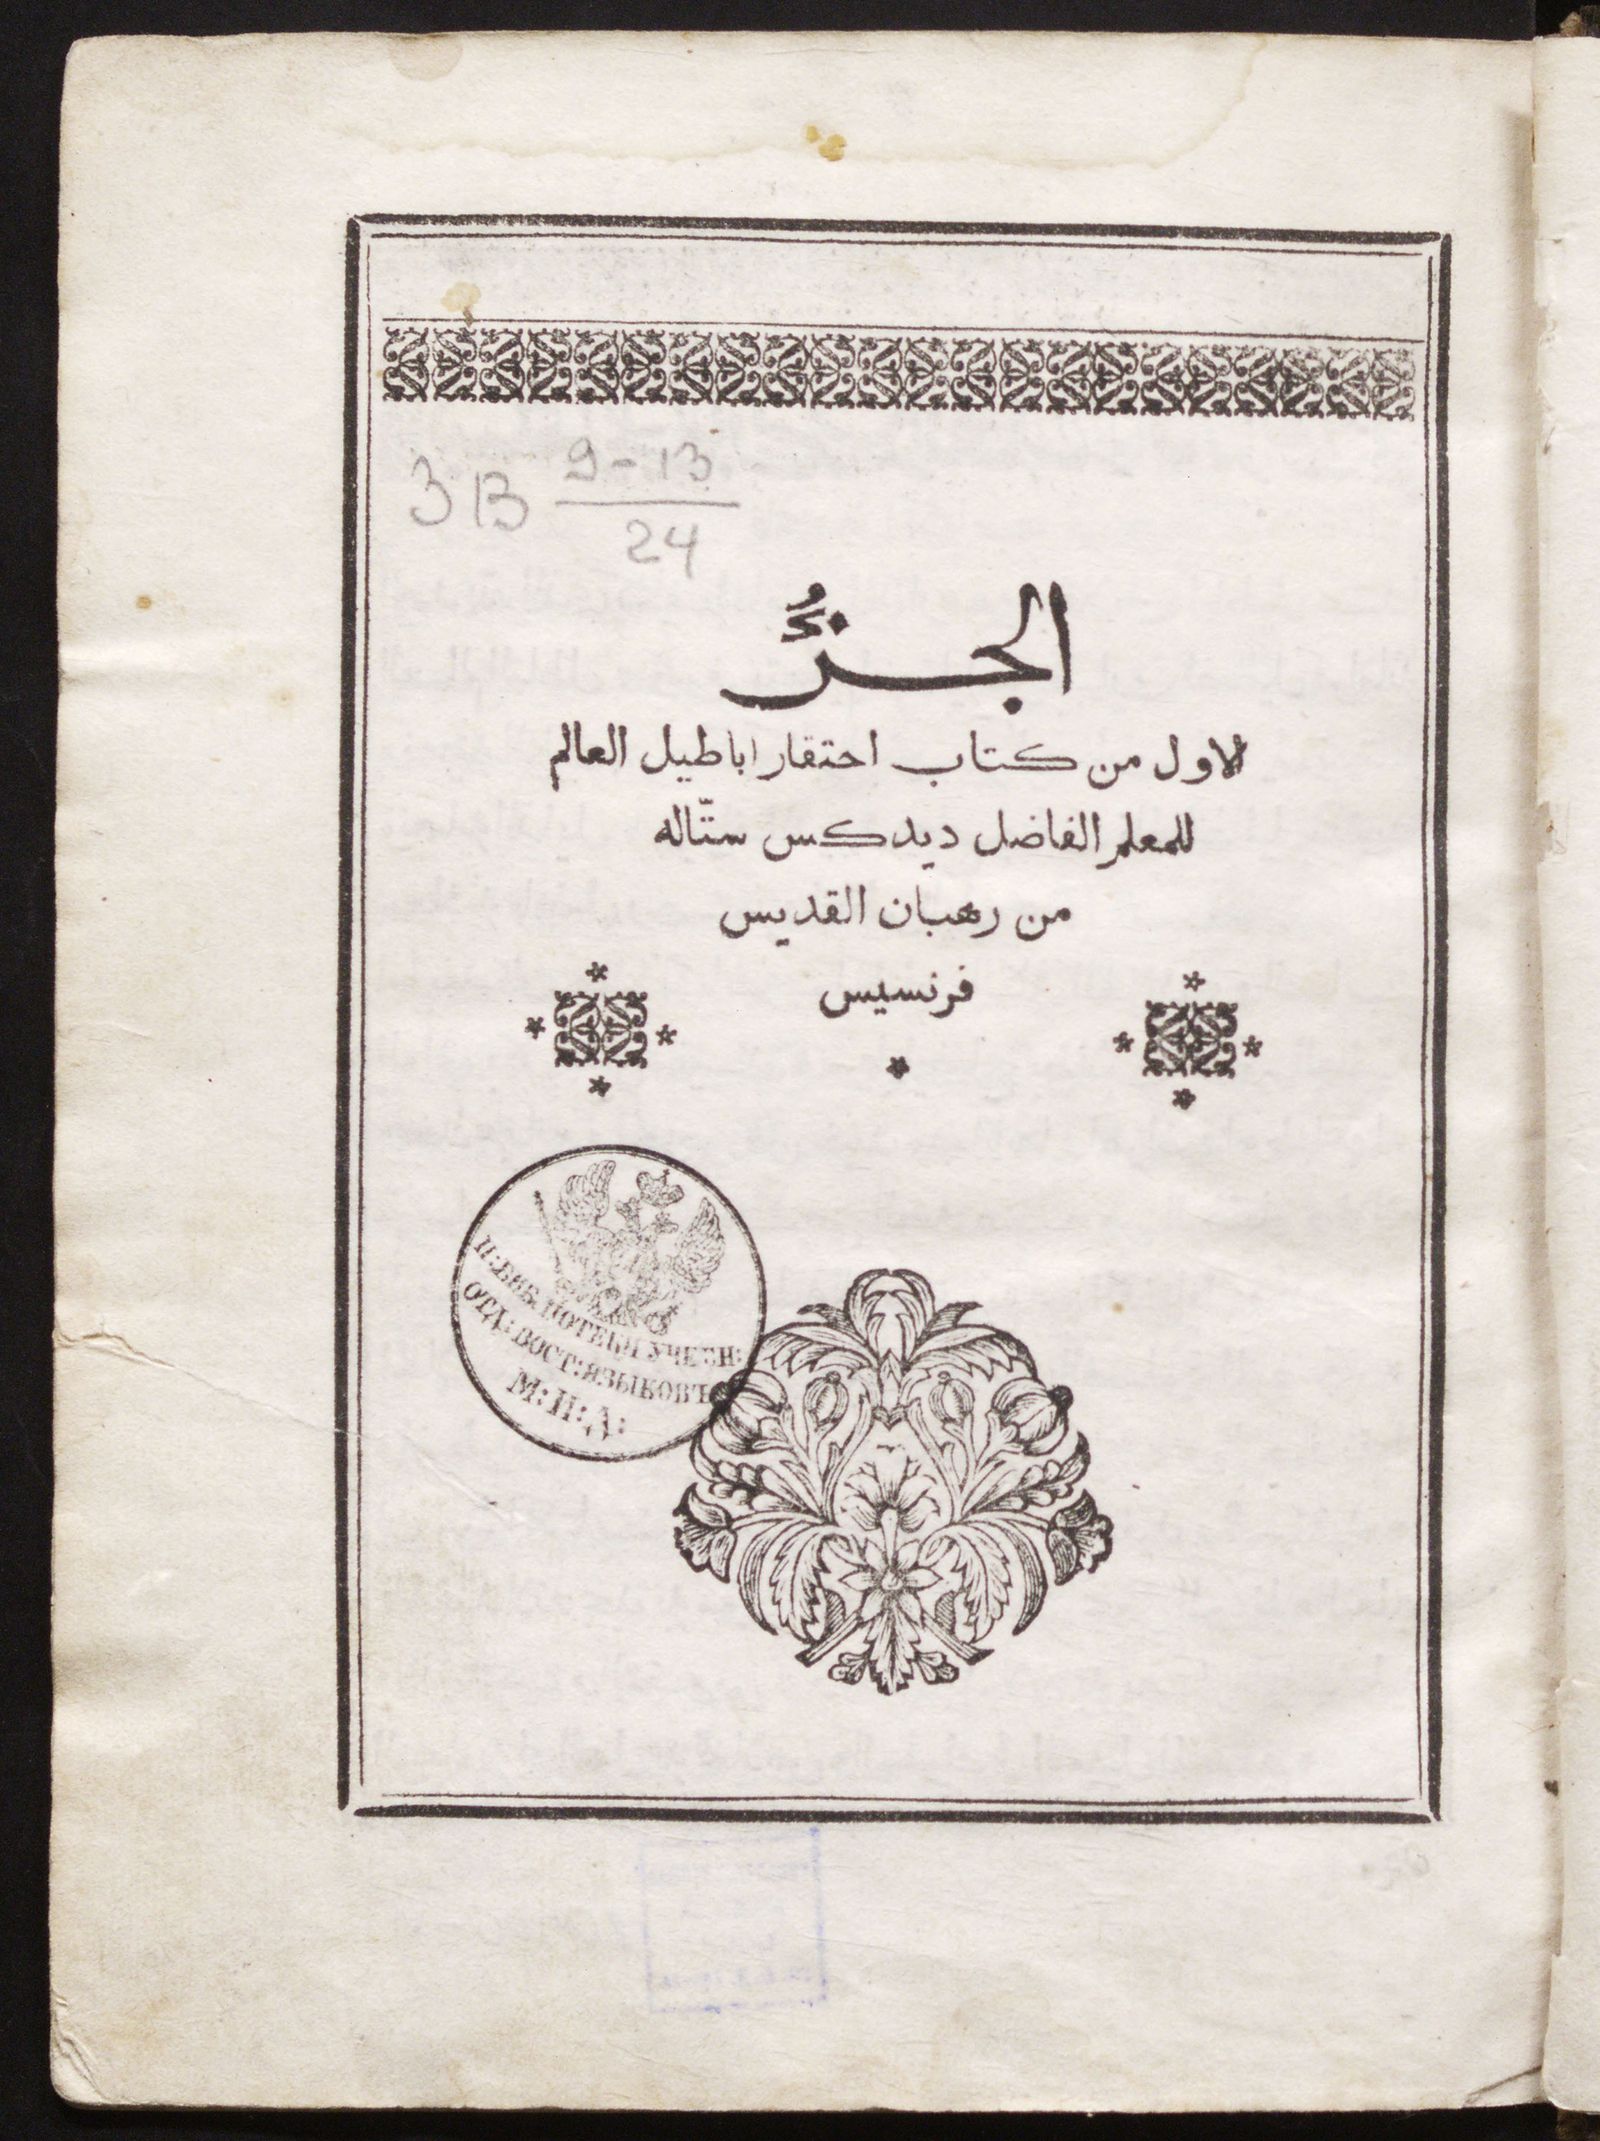 3В 9-13
24
الجزءُ
الاول من كتاب احتقار اباطيل العالم
للمعلم الفاضل ديدكس ستّاله
من رهبان القديس
فرنسيس
И: БИБ. ПОТЕКИ УЧЕБН:
ОТД: ВОСТ: ЯЗЫКОВЪ
М: И: Д: